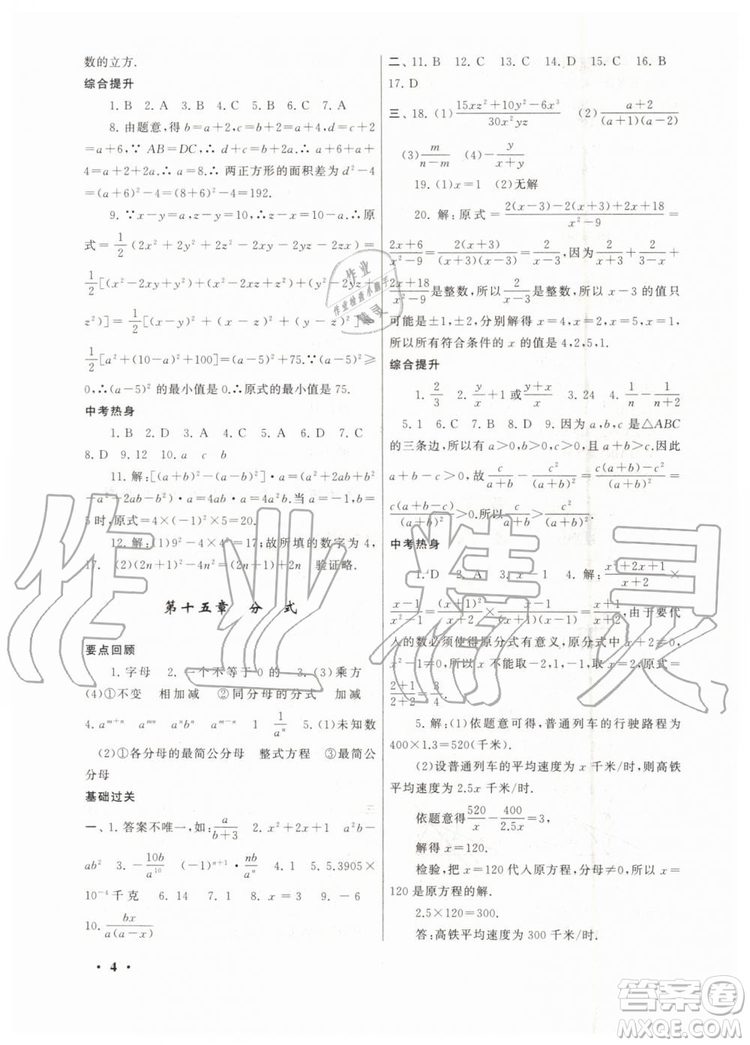 数的立方.
综合提升
1. B 2. A 3. C 4. B 5. C 6. C 7. A
8. 由题意,得 b=a+2,c=b+2=a+4,d=c+2
=a+6,∵ AB=DC,∴ d+a=b+c,∴ a+6+a
=a+4+a+2,∴ a=8.∴ 两正方形的面积差为 d²-
b²=(a+6)²-4²=(8+6)²-4²=192.
9. ∵ x-y=a,z-y=10,∴ x-z=a-10.∴ 原
式=1/2(2x²+2y²+2z²-2xy-2yz-2xz)=
1/2[(x²-2xy+y²)+(x²-2xz+z²)+(y²-2yz+
z²)]=1/2[(x-y)²+(x-z)²+(y-z)²]=
1/2[a²+(a-10)²+10²]=(a-5)²+75.∵(a-5)²≥
0,∴(a-5)² 的最小值是 0.∴ 原式的最小值是 75.
中考热身
1. B 2. D 3. C 4. A 5. C 6. B 7. C
8. D 9. D 10. 12
11. 解:[(a+b)²-(a-b)²]·a=(a²+2ab+b²
-a²+2ab-b²)·a=4ab·a=4a²b.当 a=-1,b=
5 时,原式=4×(-1)²×5=20.
12. 解:(1)9²-4×4²=17;故所填的数字为 4,
17. (2)(2n+1)²-4n²=4n+1 验证略.
第十五章 分 式
要点回顾
1. 字母 2. 一个不等于 0 的 3. (3)乘方
(4)①不变 相加减 ②同分母的分式 加减
4. aᵐ⁺ⁿ aᵐⁿ aⁿbⁿ aᵐ⁻ⁿ 1 1/aⁿ 5. (1)未知数
(2)①各分母的最简公分母 整式方程 ③最简公
分母
基础过关
一、1. 答案不唯一,如:a/(b+3) 2. 2x²+2x a²b-
ab² 3. -10b/a¹⁰ nb/a² 4. 1 5. 5.3905×
10⁻⁴千克 6. 14 7. 3 8. 1 9. 6
10. bx/(a(a-x))
· 4 ·
二、11. B 12. B 13. C 14. C 15. A 16. B
17. D
三、18. (1)(15xz²+10y²-6x³)/(30x²yz) (2)(a+2)/((a+1)(a-2))
(3)m/(n-m) (4)-y/(x+y)
19. (1)x=1 (2)无解
20. 解:原式=(2(x-3)-2(x+3)+2x+18)/(x²-9)=
(2x+6)/(x²-9)=2(x+3)/((x+3)(x-3))=2/(x-3),因为 2/(x+3)+2/(3-x)+
(2x+18)/(x²-9)是整数,所以 2/(x-3) 是整数,所以 x-3 的值只
可能是±1,±2,分别解得 x=4,x=2,x=5,x=1.
所以所有符合条件的 x 值是 4,2,5,1.
综合提升
1. 2/3 2. y/x+1 或(x+y)/x 3. 24 4. 1/n-1/(n+4)
5. 1 6. C 7. B 8. D 9. 因为 a,b,c 是△ABC
的三条边,所以 a>0,b>0,c>0,且 a+b>c.因此
a+b-c>0.故 c/a-(c-c²)/(a+b-c)=(c(a+b)-c²)/(a+b)=
c(a+b-c)/(a+b)>0.所以
中考热身
1. D 2. A 3. C 4. 解:
要使代
人的数必须使得原分式有意义,原分式中的分母
所以 x 不能取-2,1,-1.所以当 x=2 时,原式=
(2+1)/(2+2)=3/4.
5. 解:(1)依题意可得,普通列车的行驶路程为
400×1.3=520(千米).
(2)设普通列车的平均速度为 x 千米/时,则高铁
平均速度为 2.5x 千米/时.
依题意得 520/x-400/2.5x=3,
解得 x=120.
检验,把 x=120 代入原方程,方程成立,故 x=
120 是原方程的解.
2.5×120=300.
答:高铁平均速度为 300 千米/时.
作业精灵
答案圈
MXQE.COM